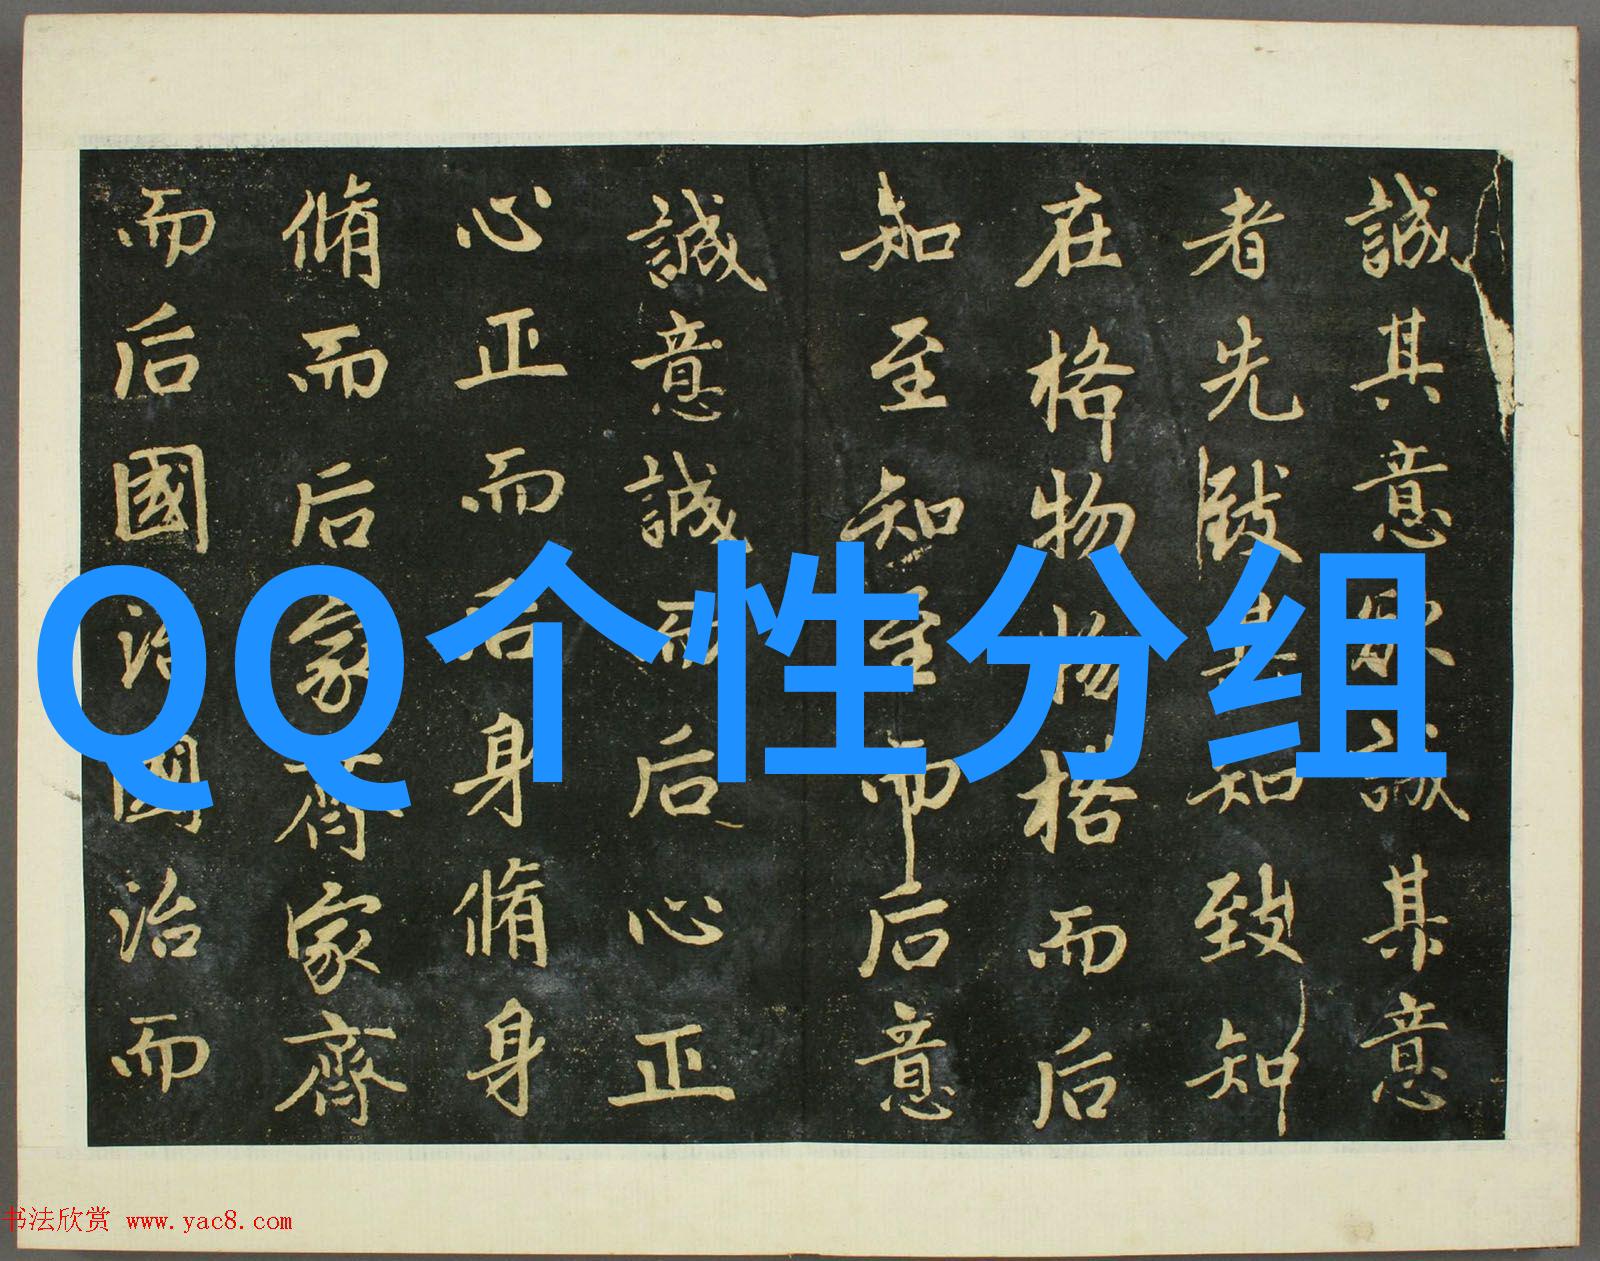 誠其意欲誠其意
者先致其知致知
在格物物格而后
知至知至而后意
誠意誠而后心正
心正而后身脩身
脩而后家齊家齊
而后國治國治而
QQ个性分组
书法欣赏 www.yac8.com